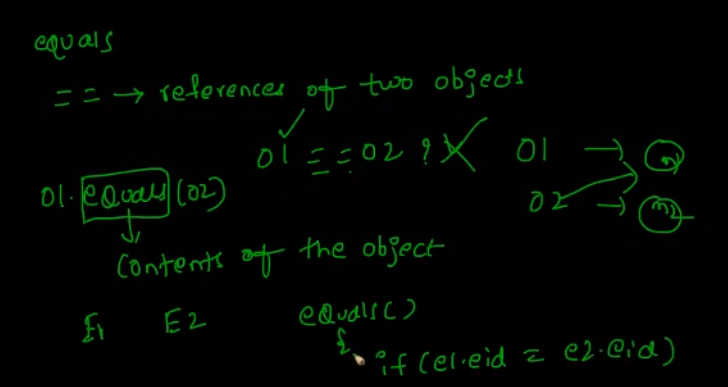 equals
== → references of two objects
O1 == O2 ?
O1 → m1
O1.equals(O2)
O2 → m2
Contents of the object
E1 E2 equals()
{
if (e1.eid = e2.eid)